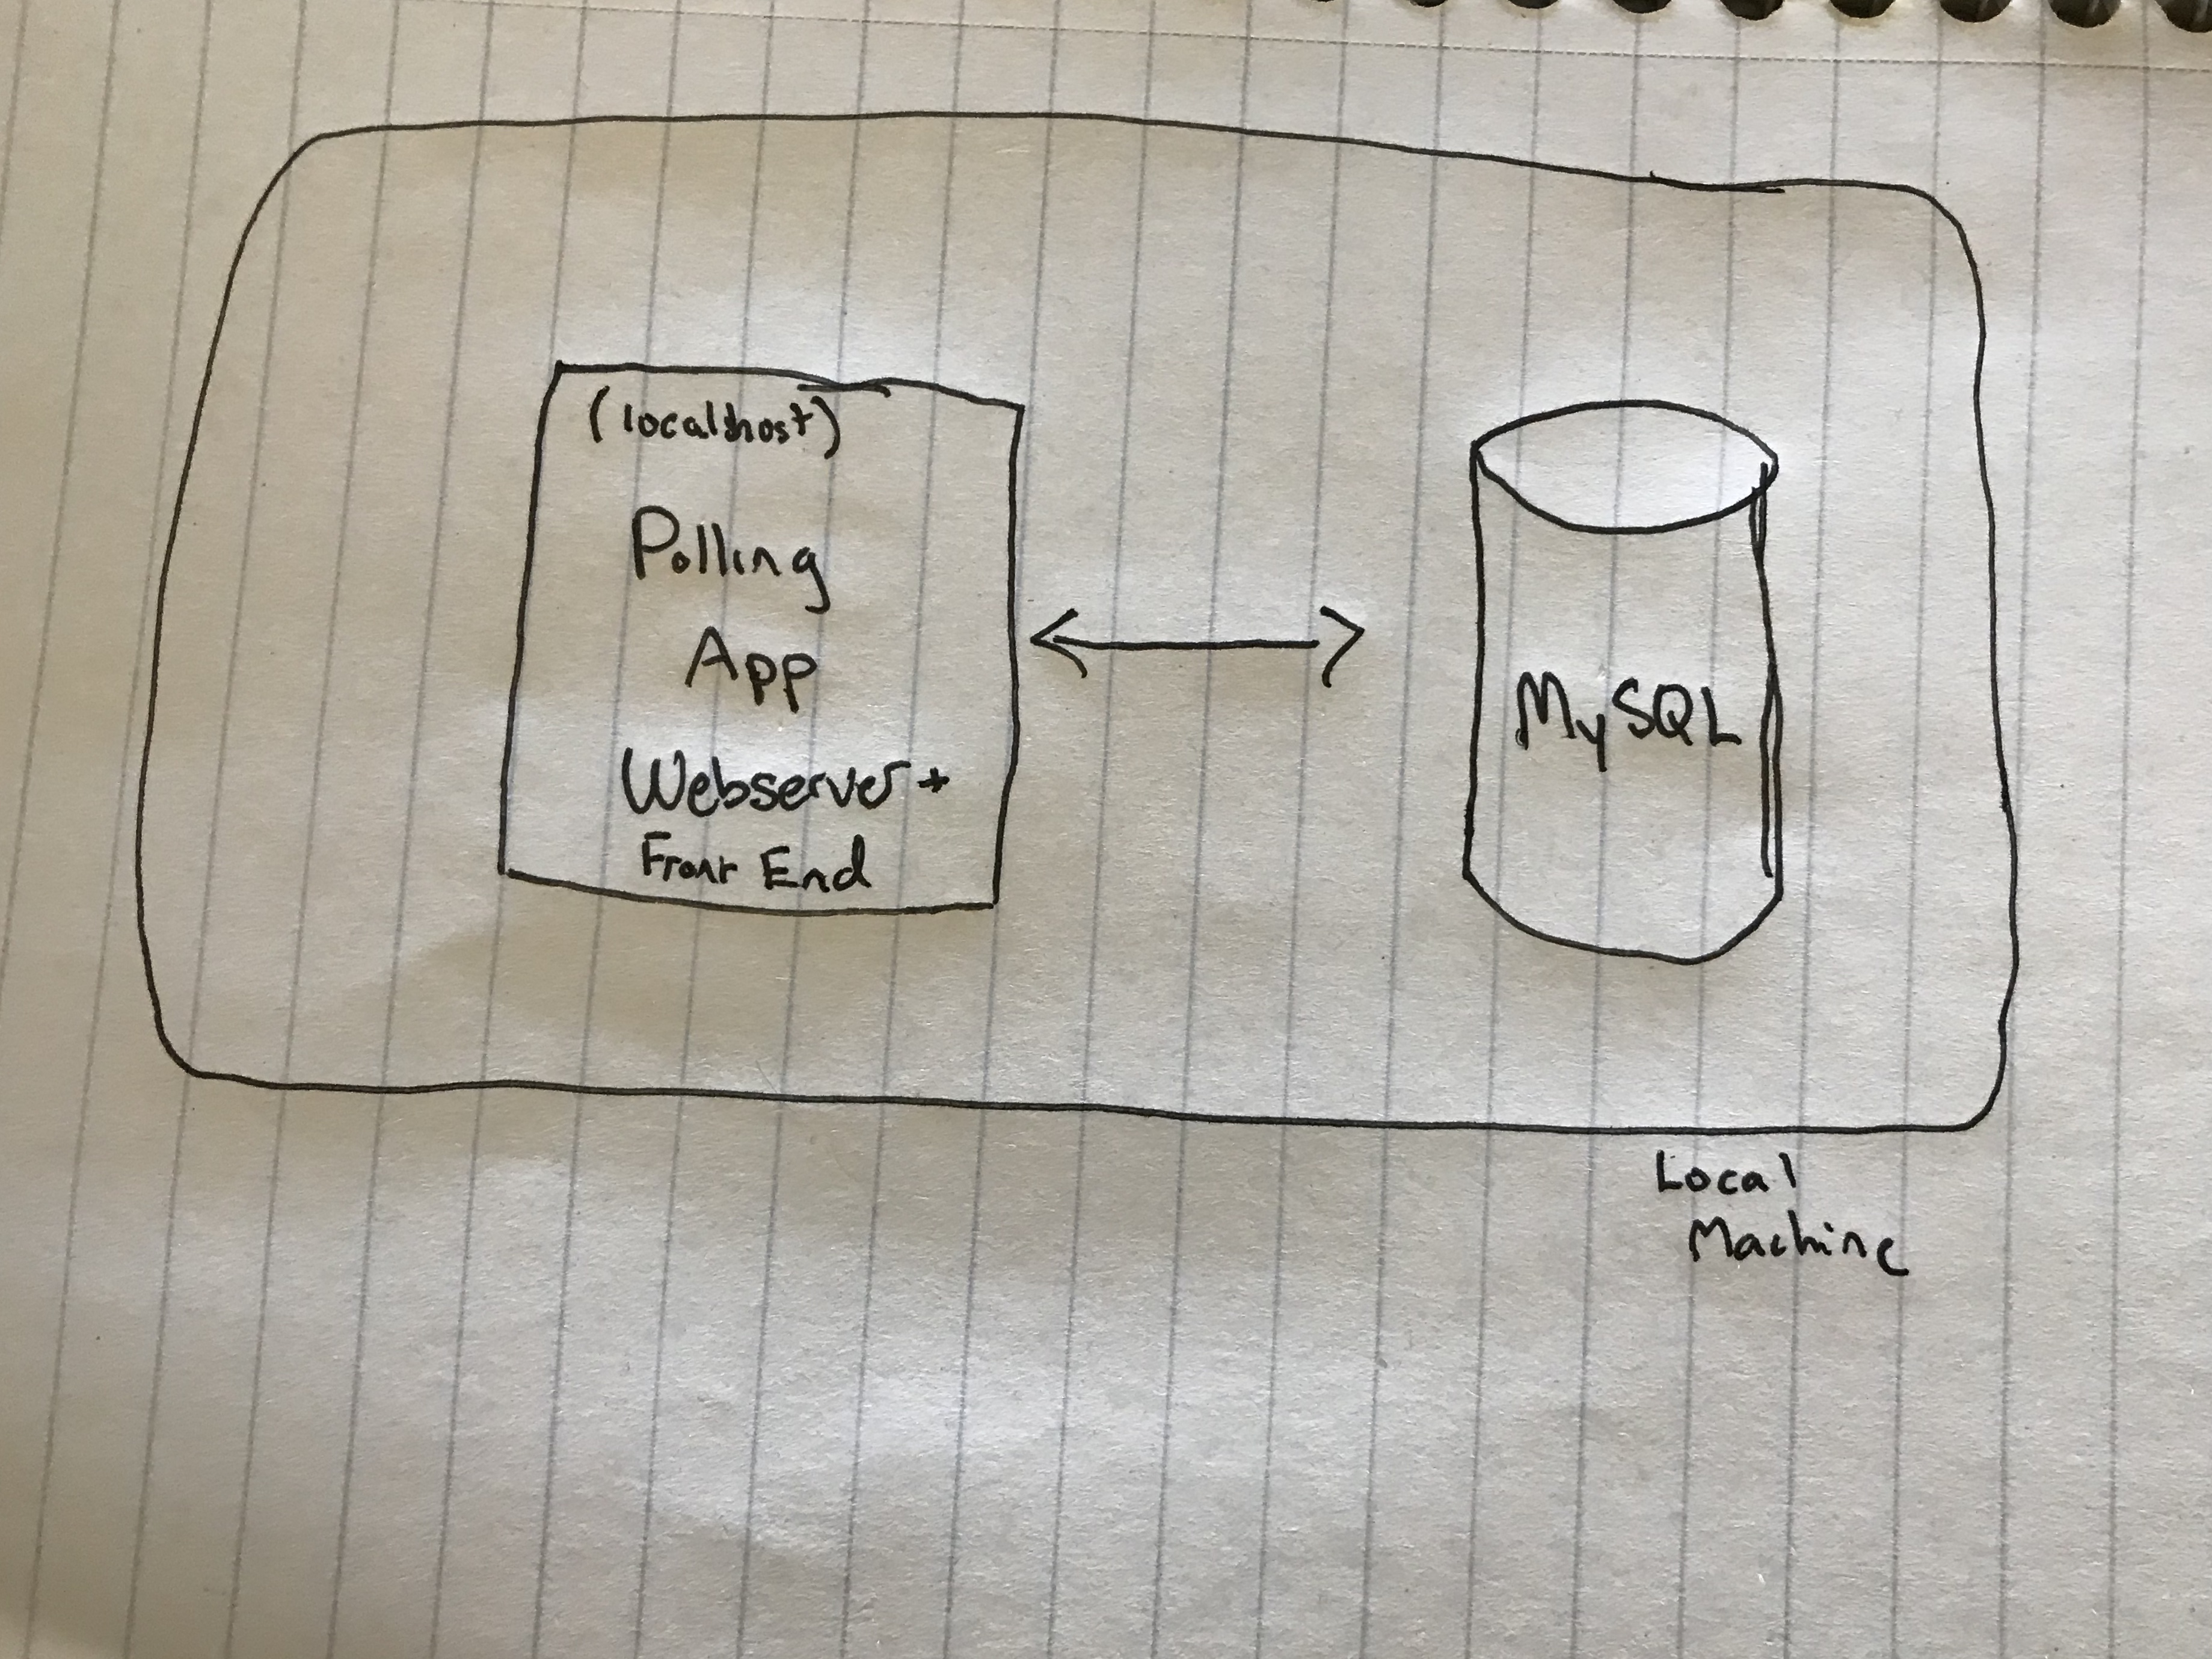 (localhost)
Polling
App
Webserver +
Front End
MySQL
Local
Machine